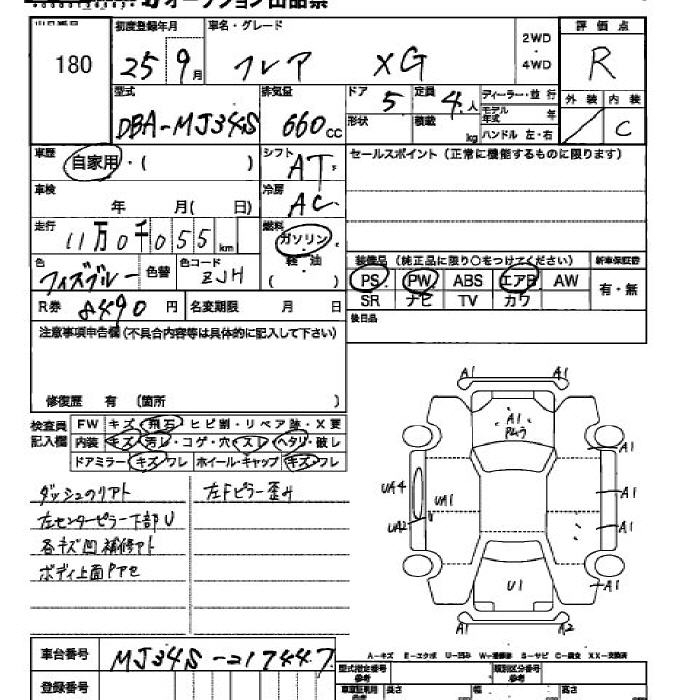 オークション出品票
180
初度登録年月
25 9月
車名・グレード
フレア XG
2WD・4WD
評価点
R
外装 内装
C
型式
DBA-MJ34S
排気量
660cc
ドア 5
形状
定員 4人
積載 kg
ディーラー・並行
モデル年式 年
ハンドル 左・右
車歴
自家用・( )
シフト
AT
セールスポイント(正常に機能するものに限ります)
車検
年 月( 日)
冷房
AC
走行
11万0千055km
燃料
ガソリン
軽・油
( )
色
色替
色コード
ZJH
装備品(純正品に限り○をつけてください)
新車保証書
PS PW ABS エアB AW
有・無
SR ナビ TV カワ
R券 8490円
名変期限 月 日
後日品
注意事項申告欄(不具合内容等は具体的に記入して下さい)
修復歴 有 (箇所 )
検査員記入欄
FW キズ・飛石・ヒビ割・リペア跡・X要
内装 キズ・汚レ・コゲ・穴・スレ・ヘタリ・破レ
ドアミラー キズ・ワレ ホイール・キャップ キズ・ワレ
左Fピラー歪み
左センターピラー下部U
各キズ凹補修アト
A1 A1
A1
A1
UA4
UA1
A1
UA2
A1
U1
A1
A1 A2
A-キズ E-エクボ U-凹み W-補修跡 S-サビ C-腐食 XX-交換済
車台番号
MJ34S-217447
登録番号
型式指定番号
類別区分番号
長さ 幅 高さ